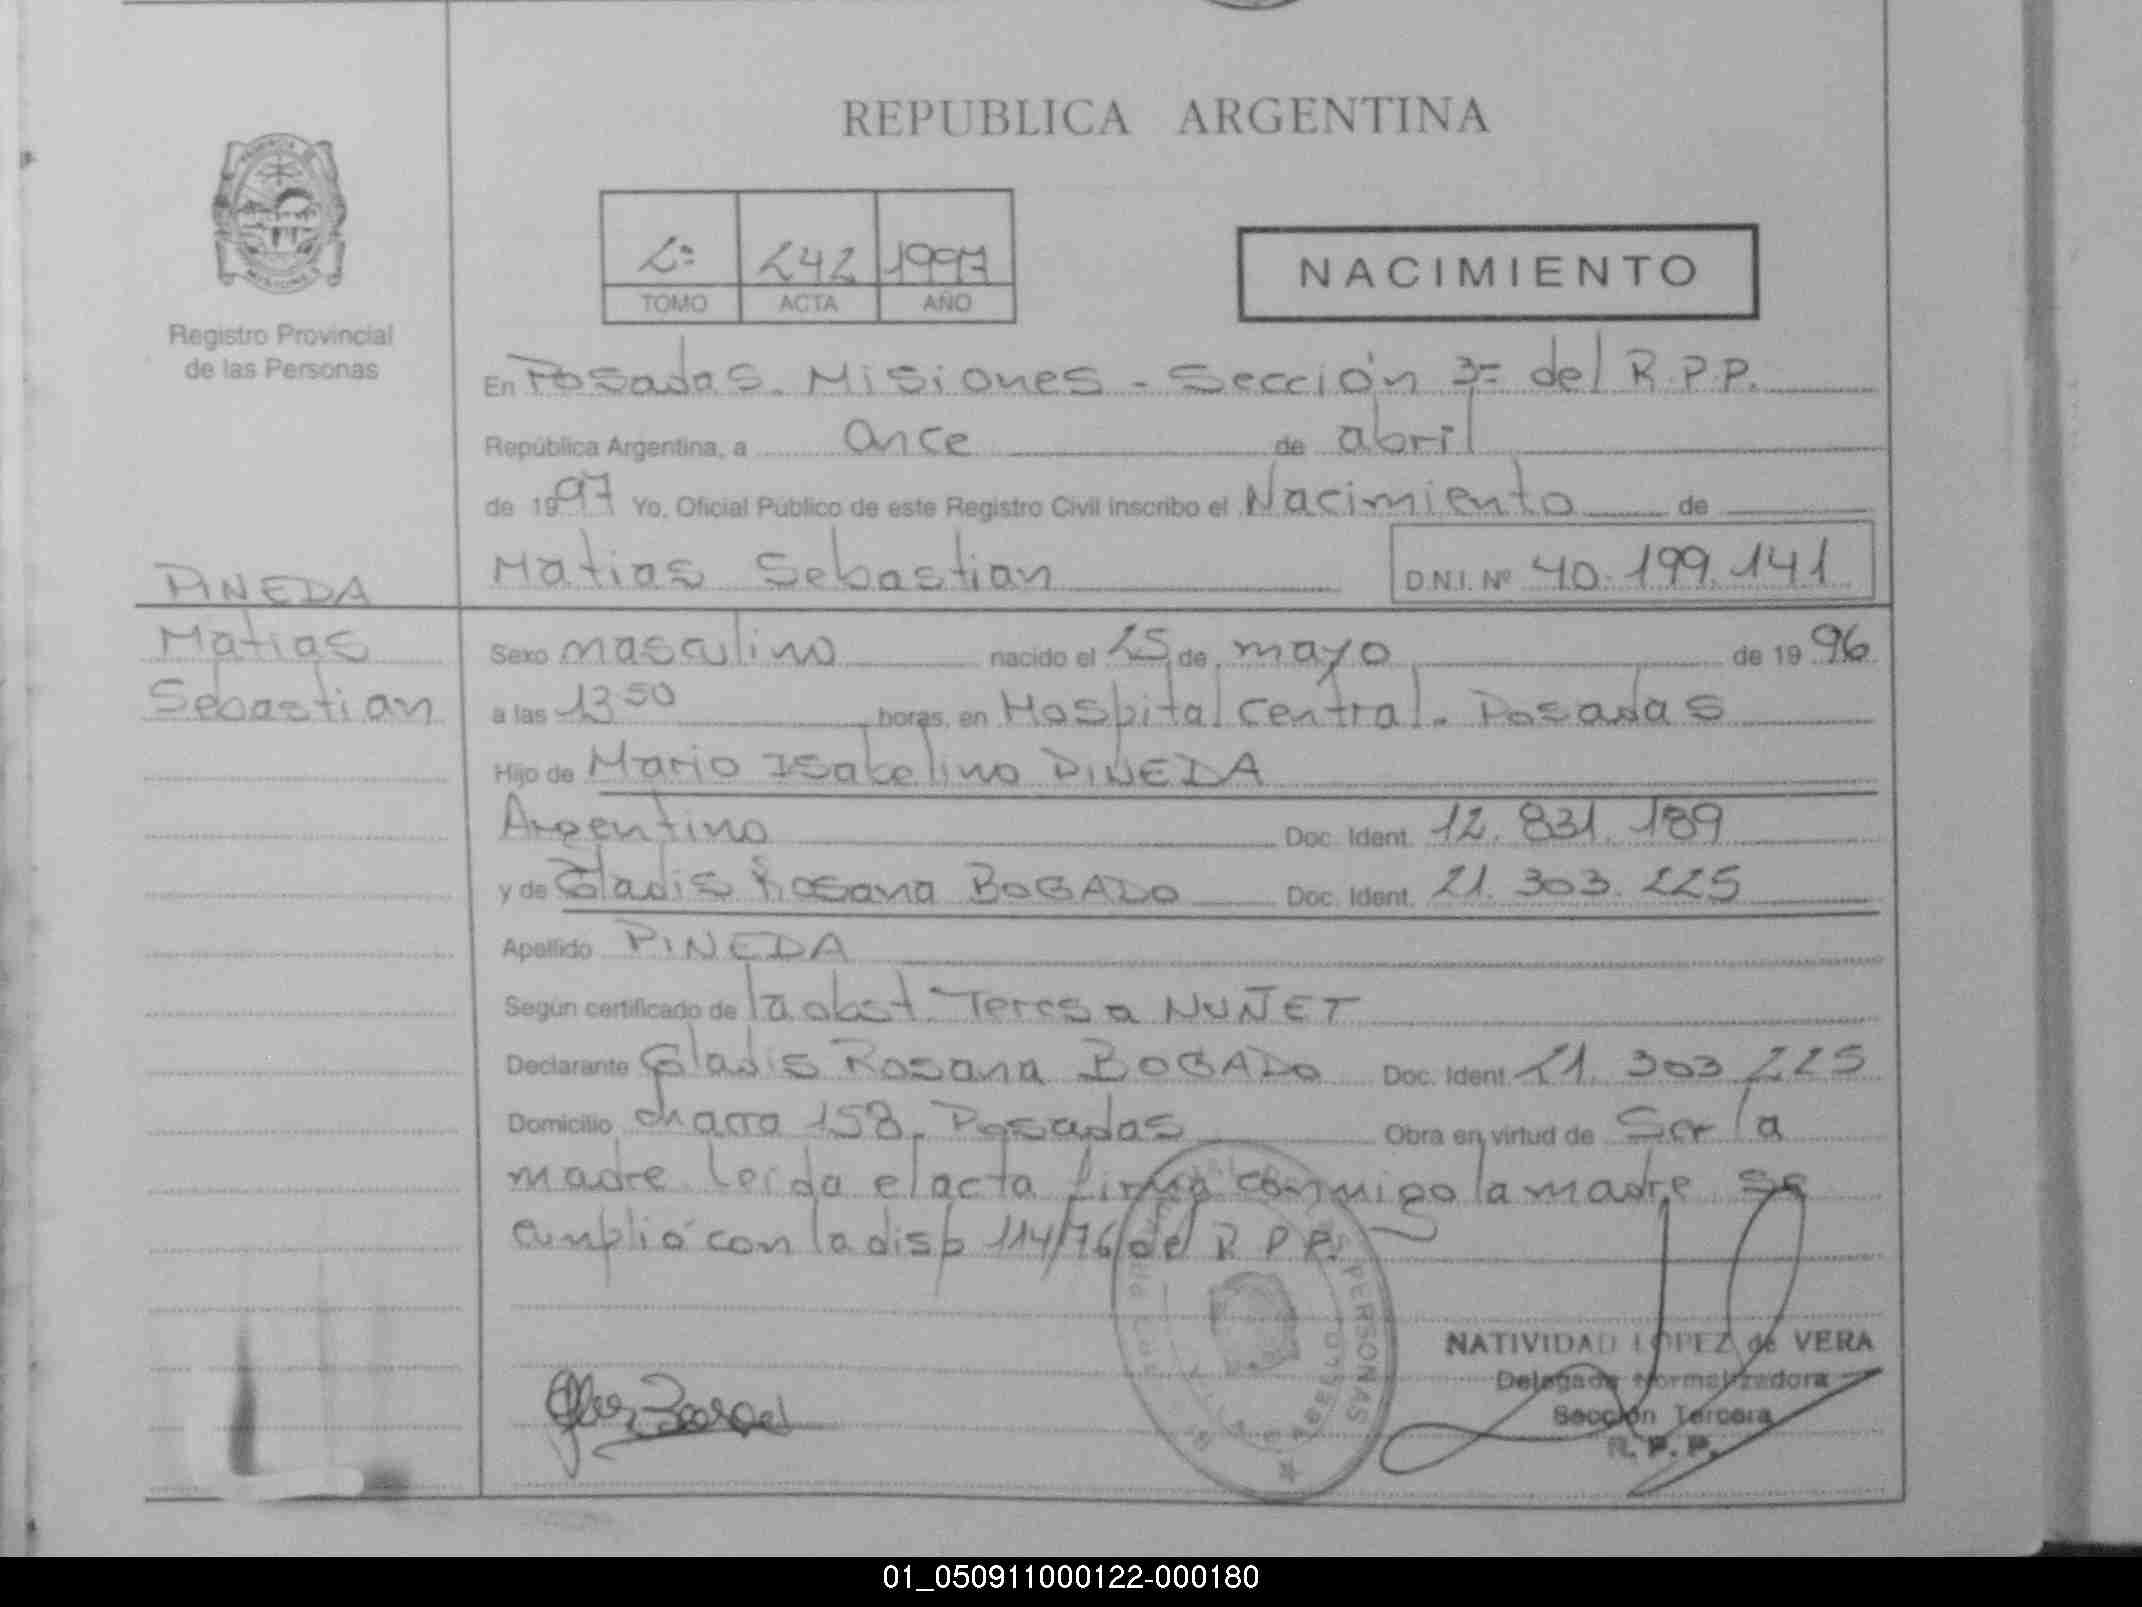 REPUBLICA ARGENTINA
2º 242 1997
TOMO ACTA AÑO
NACIMIENTO
Registro Provincial
de las Personas
En Posadas. Misiones - Sección 3º del R.P.P.
República Argentina, a once de abril
de 1997 Yo, Oficial Público de este Registro Civil inscribo el Nacimiento de
Matias Sebastian D.N.I. Nº 40.199.141
PINEDA
Matias
Sebastian
Sexo masculino nacido el 25 de mayo de 1996
a las 13 50 horas, en Hospital Central. Posadas
Hijo de Mario Isabelino PINEDA
Argentino Doc. Ident. 12.831.189
y de Gladis Rosana BOGADO Doc. Ident. 21.303.225
Apellido PINEDA
Según certificado de la obst. Teresa NUÑET
Declarante Gladis Rosana BOGADO Doc. Ident. 21.303.225
Domicilio chacra 158. Posadas Obra en virtud de Ser la
madre leida el acta firma conmigo la madre Se
cumplió con la disp 114/76 del R.P.P.
PERSONAS
NATIVIDAD LOPEZ de VERA
Delegada Normalizadora
Sección Tercera
R.P.P.
01_050911000122-000180